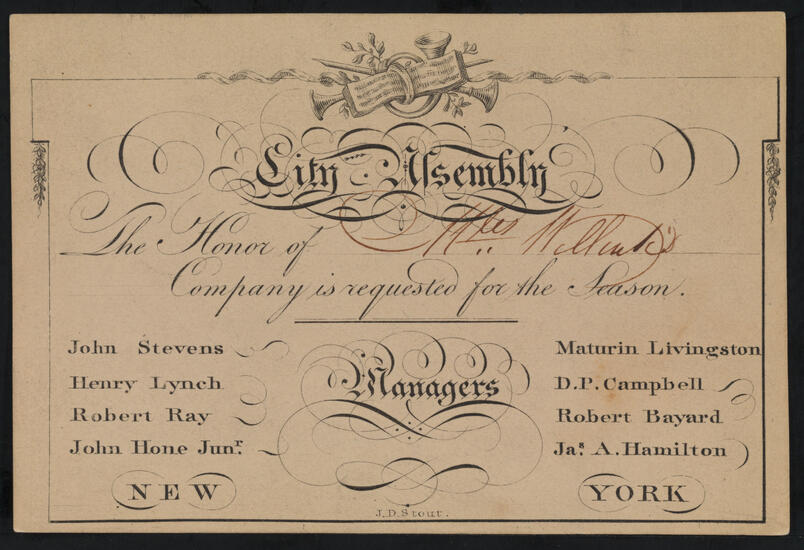 City Assembly
The Honor of Willink's
Company is requested for the Season.
Managers
John Stevens
Henry Lynch
Robert Ray
John Hone Junr.
Maturin Livingston
D.P. Campbell
Robert Bayard
Jas. A. Hamilton
NEW YORK
J.D. Stout.